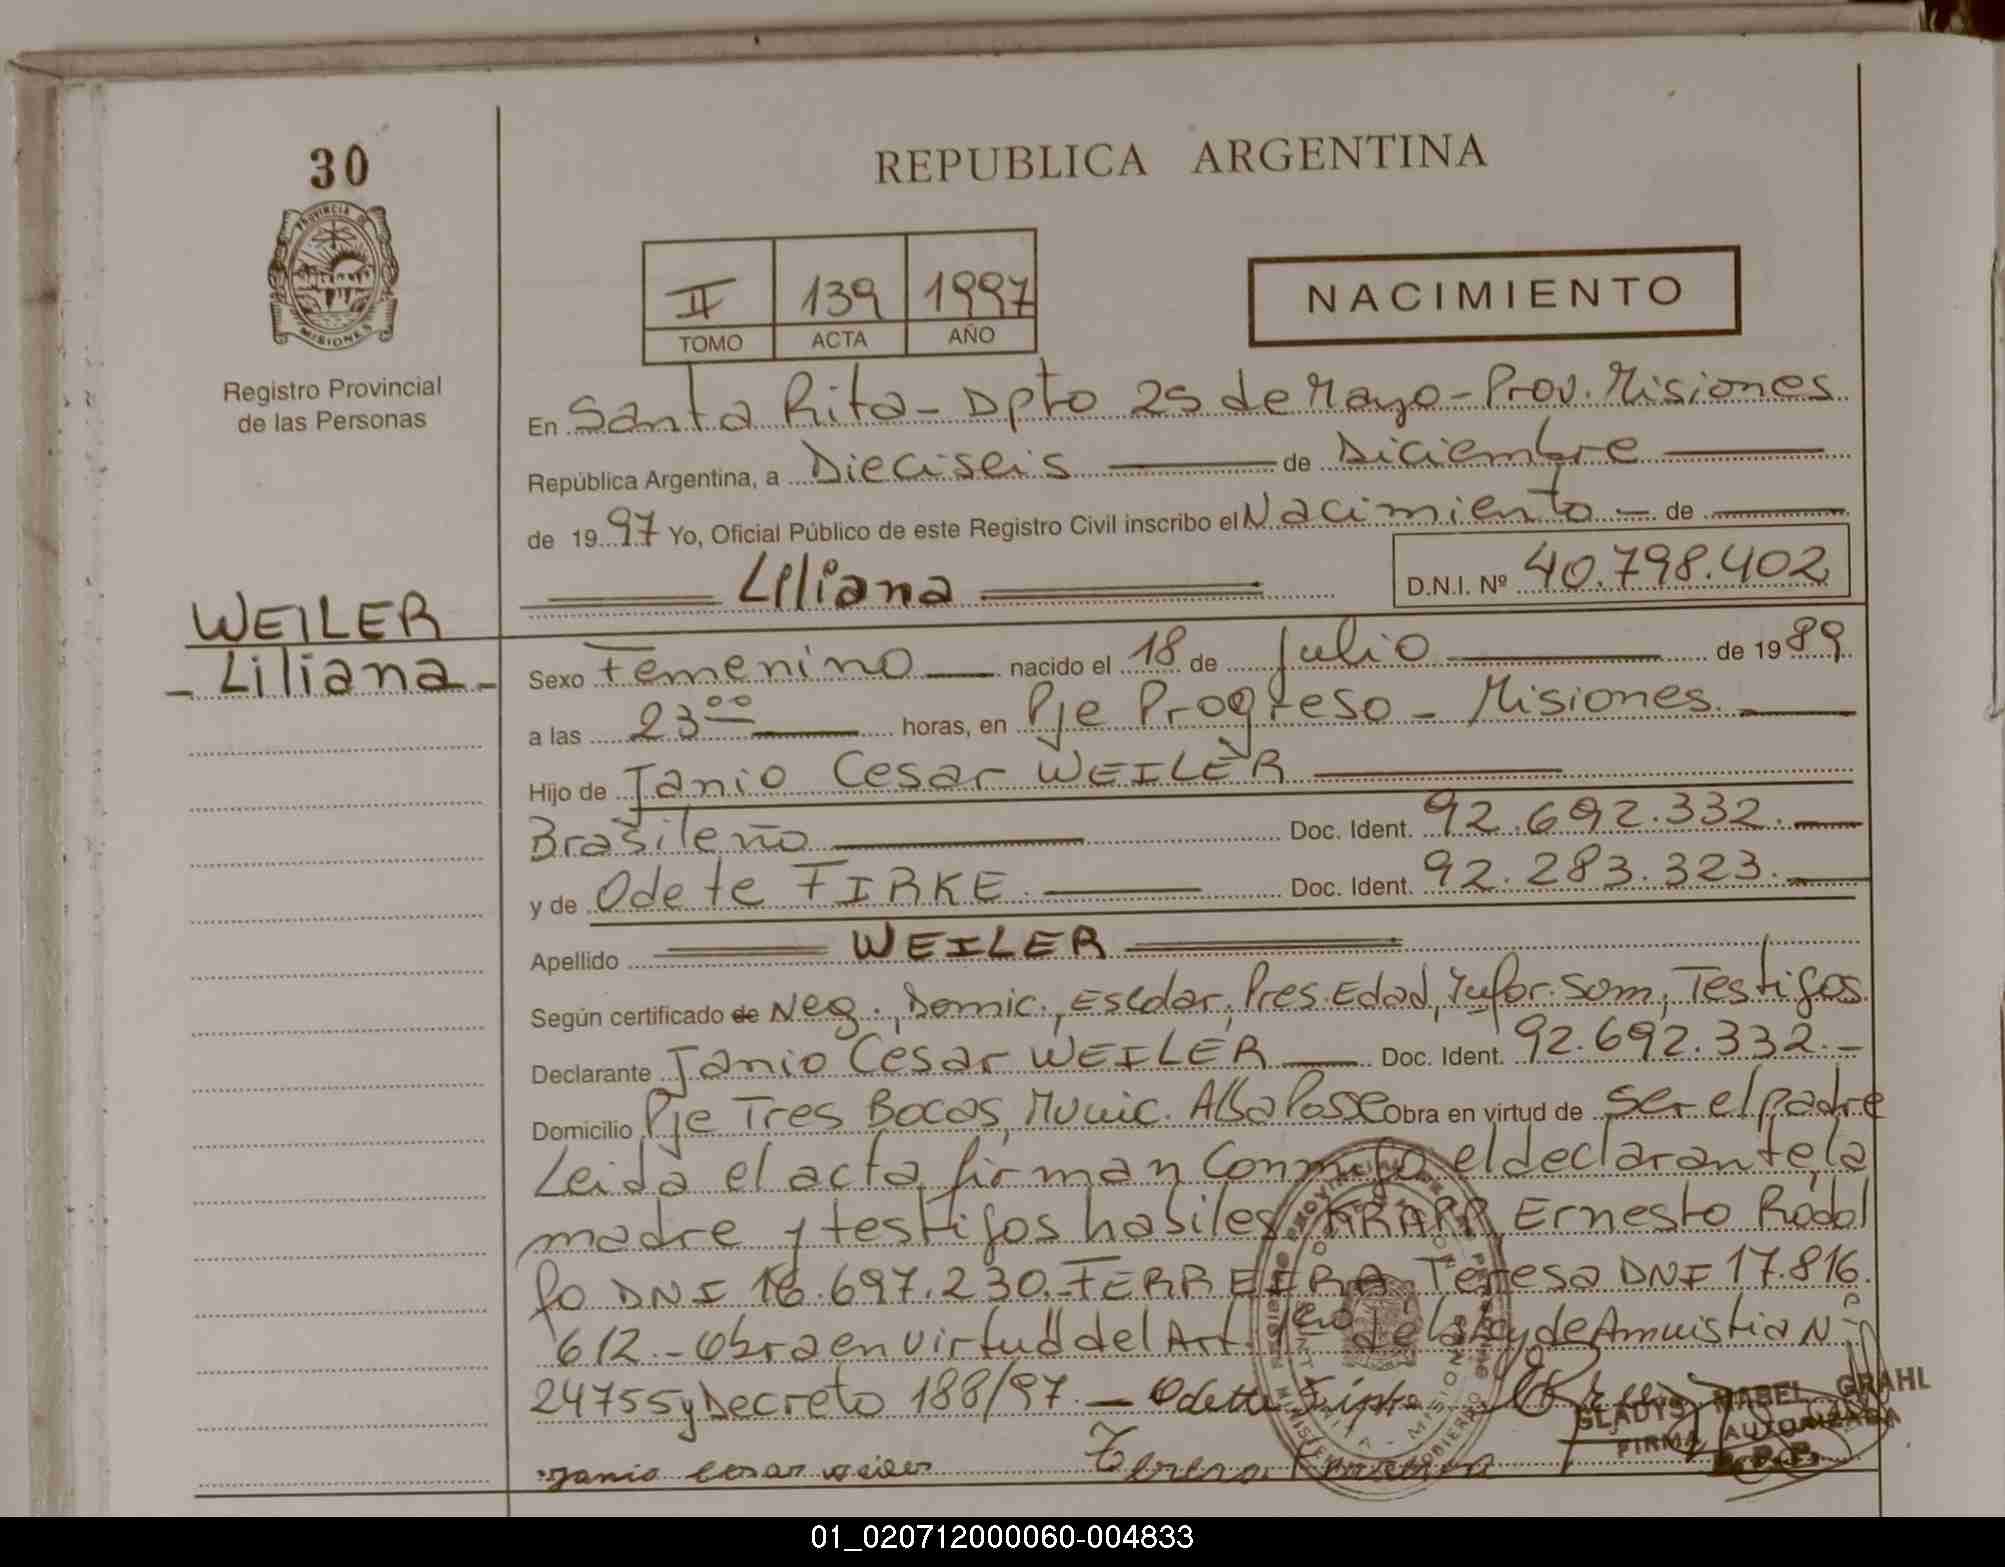 30
PROVINCIA DE
MISIONES
Registro Provincial
de las Personas
WEILER
- Liliana -
REPUBLICA ARGENTINA
II 139 1997
TOMO ACTA AÑO
NACIMIENTO
En Santa Rita - Dpto 25 de Mayo - Prov. Misiones
República Argentina, a Dieciseis de Diciembre
de 1997 Yo, Oficial Público de este Registro Civil inscribo el Nacimiento - de
Liliana D.N.I. Nº 40.798.402
Sexo Femenino nacido el 18 de Julio de 1989
a las 23 00 horas, en Pje Progreso - Misiones.
Hijo de Janio Cesar WEILER
Brasileño Doc. Ident. 92.692.332.
y de Odete FIRKE. Doc. Ident. 92.283.323.
Apellido WEILER
Según certificado de Neg., Domic., Escolar, Pres. Edad, Infor. Som, Testigos
Declarante Janio Cesar WEILER Doc. Ident. 92.692.332.-
Domicilio Pje Tres Bocas, Munic. Alba Posse Obra en virtud de ser el padre
Leida el acta firman conmigo el declarante, la
madre y testigos habiles KRAPP, Ernesto Rodol
fo DNI 16.697.230. FERREIRA Teresa DNI 17.816.
612.- Obra en virtud del Art. 1ero de la Ley de Amnistia Nº
24755 y Decreto 188/97.- Odette
GLADYS MABEL GRAHL
FIRMA AUTORIZADA
R.P.P.
Janio Cesar Weiler Teresa
01_020712000060-004833